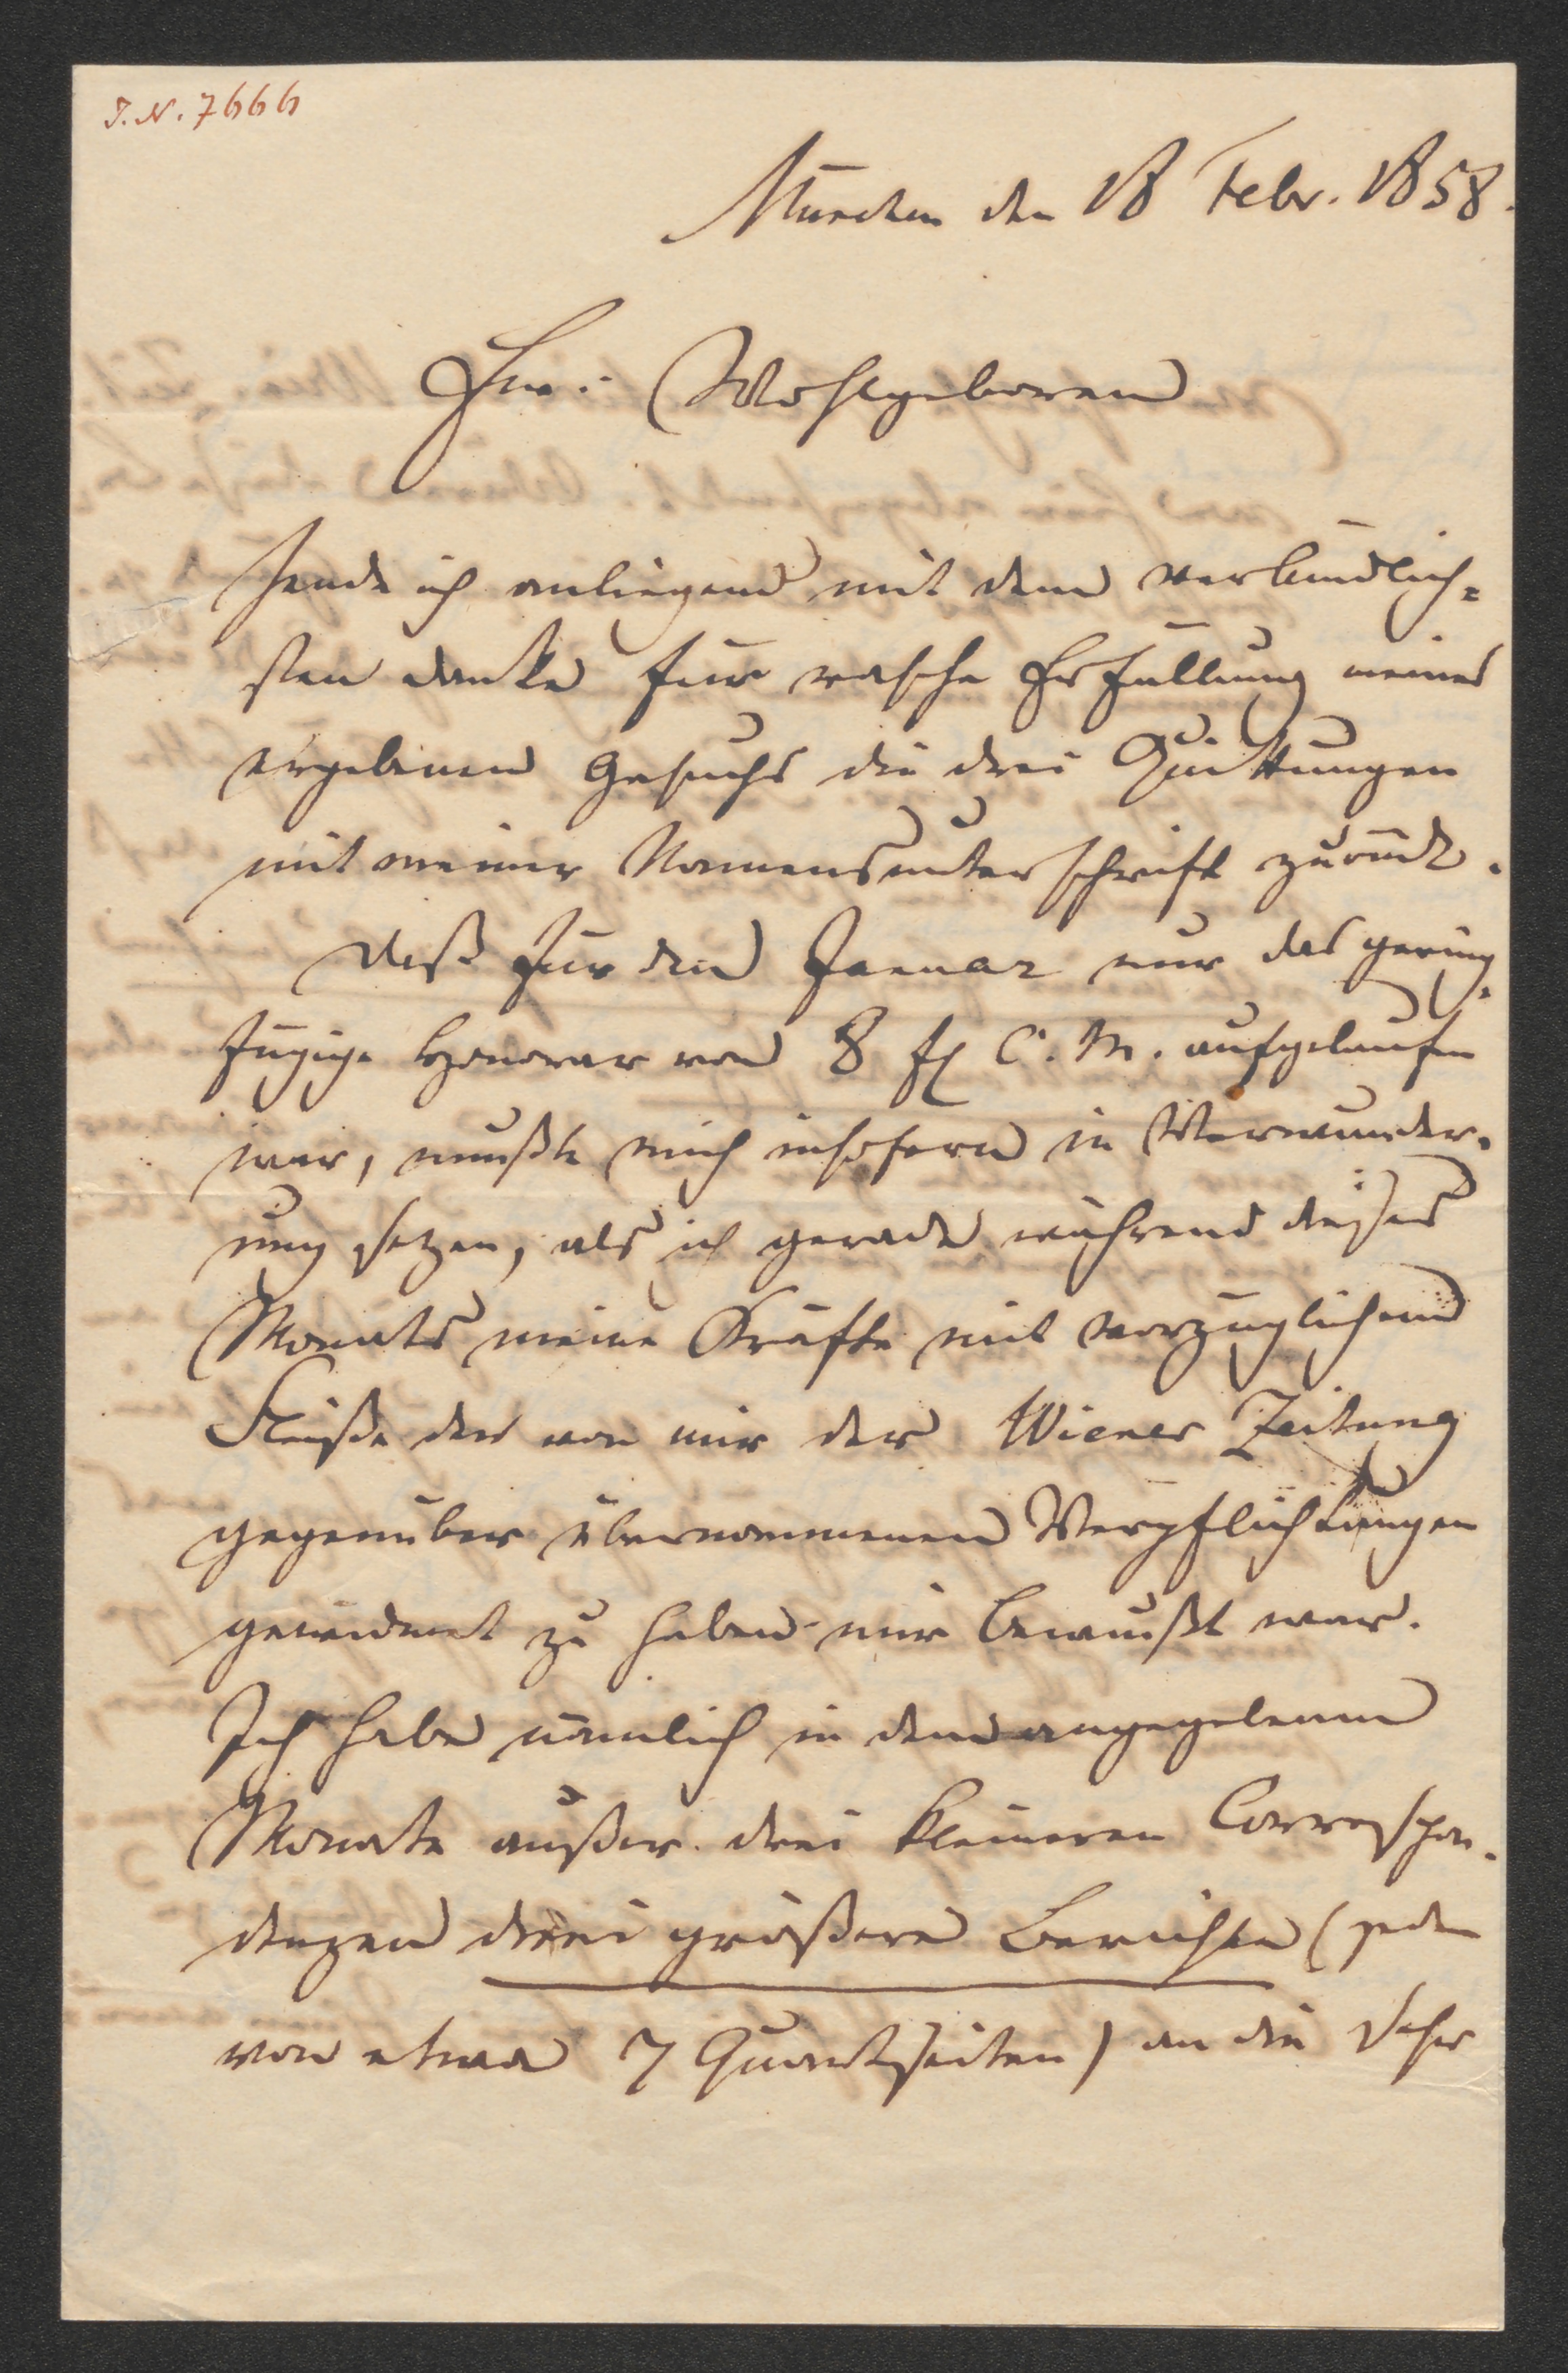 I. N. 7666
München den 18 Febr. 1858.
Ew. Wohlgeboren
sende ich anliegend mit dem verbindlich=
sten Danke für rasche Erfüllung meines
ergebenen Gesuchs die drei Quittungen
mit meiner Namensunterschrift zurück.
Daß für den Januar nur das gering-
fügige Honorar von 8 fl C. M. aufgelaufen
war, mußte mich insofern in Verwunder-
ung setzen, als ich gerade während dieses
Monats meine Kräfte mit vorzüglichem
Fleiße den von mir der Wiener Zeitung
gegenüber übernommenen Verpflichtungen
gewidmet zu haben mir bewußt war.
Ich habe nämlich in dem angegebenen
Monate außer drei kleineren Correspon-
denzen drei größere Berichte (jeden
von etwa 7 Quartseiten) an die